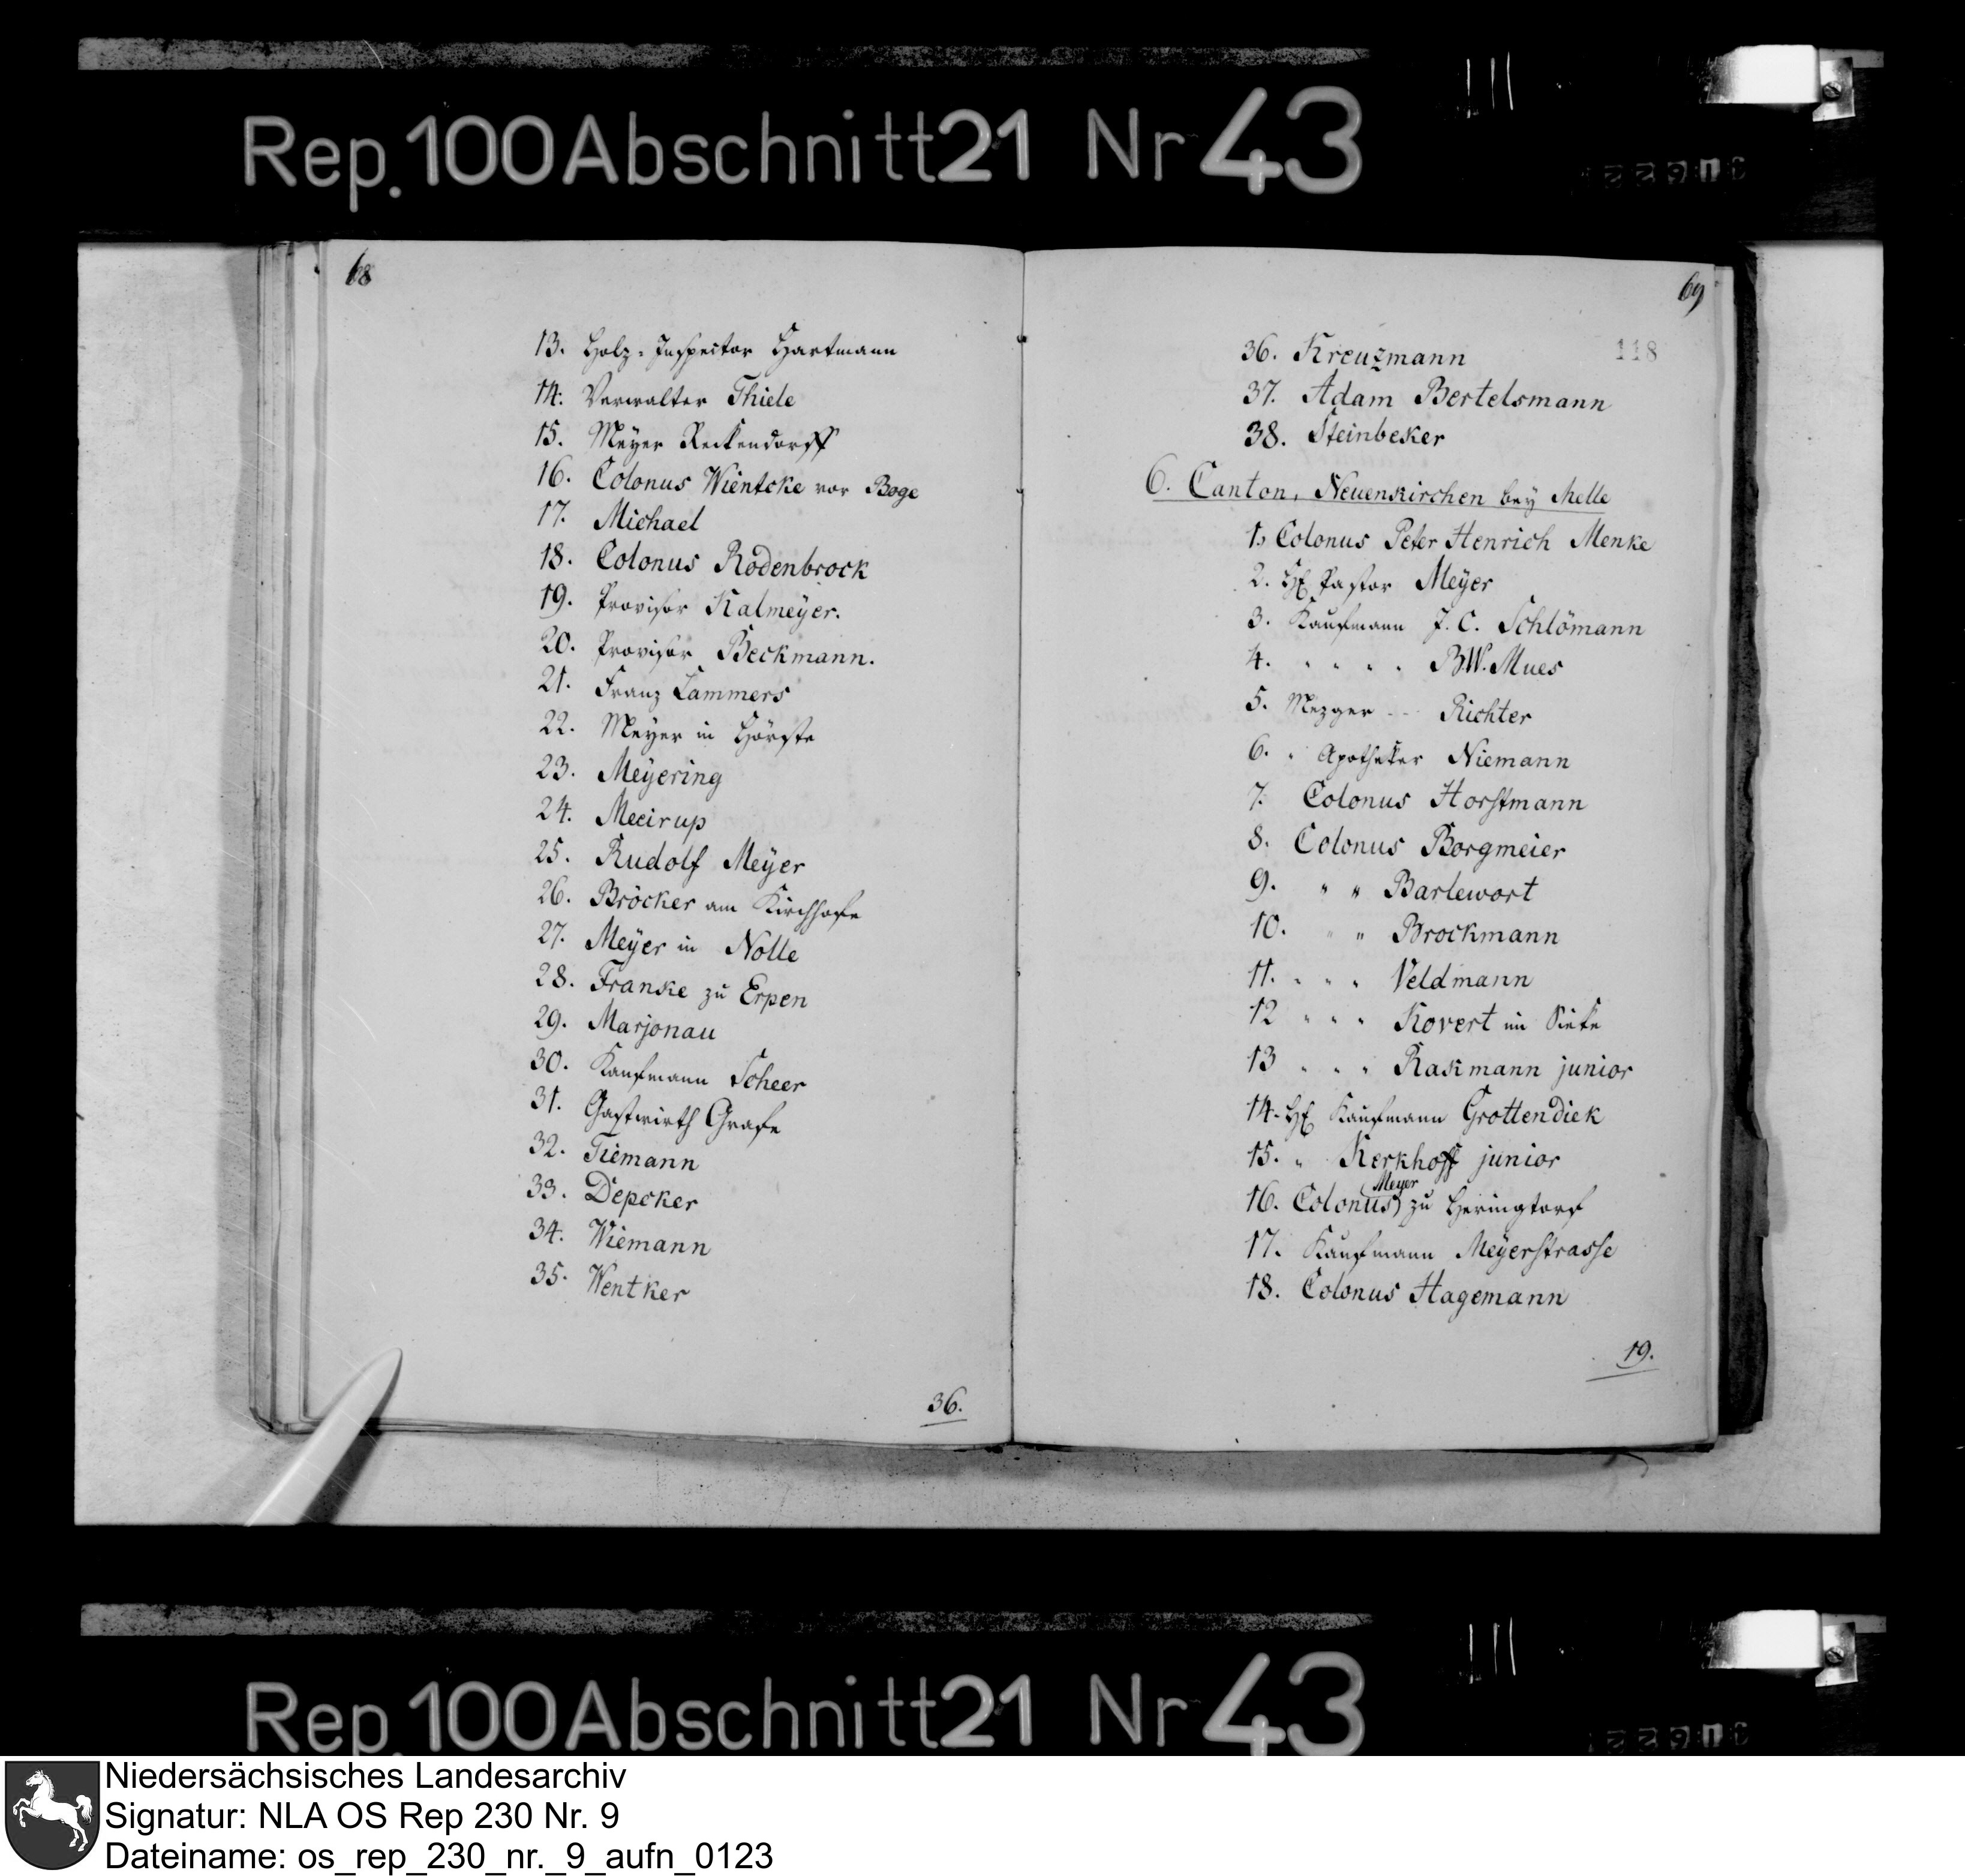 Rep. 100 Abschnitt 21 Nr 43
68
13. Holz-Inspector Hartmann
14. Verwalter Thiele
15. Meÿer Reckendorff
16. Colonus Wientcke vor Boge
17. Michael
18. Colonus Rodenbrock
19. Provisor Kalmeÿer.
20. Provisor Beckmann.
21. Franz Lammers
22. Meÿer in Hörste
23. Meÿering
24. Mecirup
25. Rudolf Meÿer
26. Bröcker am Kirchhofe
27. Meÿer in Nolle
28. Franke zu Erpen
29. Marjonau
30. Kaufmann Scheer
31. Gastwirth Grafe
32. Tiemann
33. Depcker
34. Wiemann
35. Wentker
36.
69
118
36. Kreuzmann
37. Adam Bertelsmann
38. Steinbeker
6. Canton, Neuenkirchen beÿ Melle
1. Colonus Peter Henrich Menke
2. H. Pastor Meÿer
3. Kaufmann J. C. Schlömann
4. " " " " B.W. Mues
5. Mezger -- Richter
6. " Apotheker Niemann
7. Colonus Horstmann
8. Colonus Borgmeier
9. " " Barlewort
10. " " Brockmann
11. " " " Veldmann
12 " " " Kovert im Sieke
13 " " " Rakmann junior
14. H. Kaufmann Grottendiek
15. " Kerkhoff junior
16. Colonus Meyer zu Heringtorf
17. Kaufmann Meÿerstrasse
18. Colonus Hagemann
19.
Rep. 100 Abschnitt 21 Nr 43
Niedersächsisches Landesarchiv
Signatur: NLA OS Rep 230 Nr. 9
Dateiname: os_rep_230_nr._9_aufn_0123